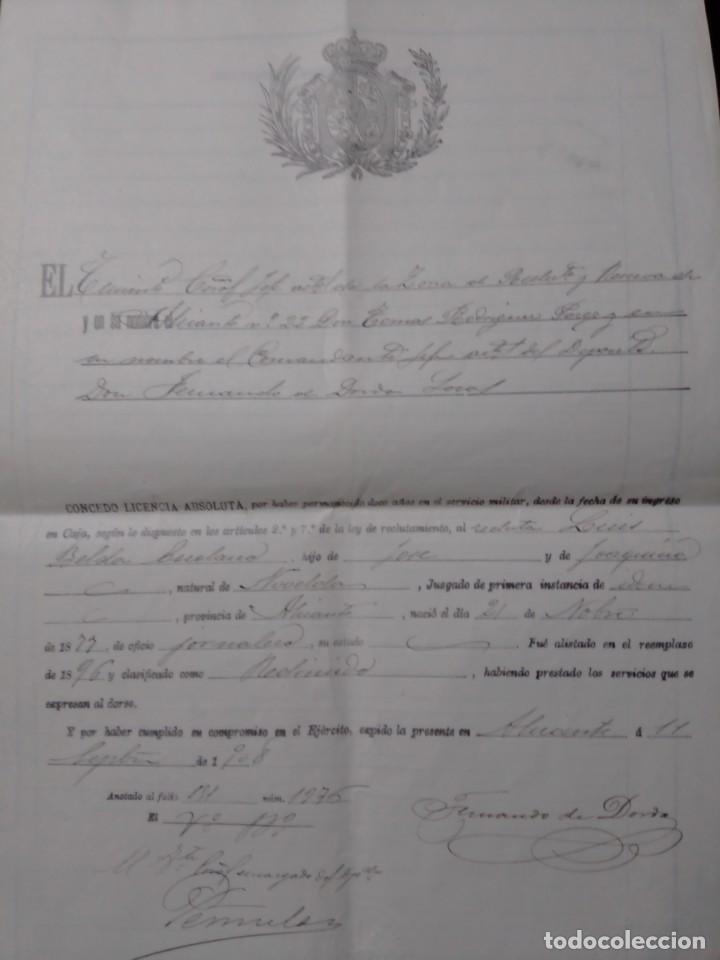 EL Teniente Coronel Jefe actal de la Zona de Reclutº y Reserva de
Alicante nº 22 Don Tomas Rodriguez Perez y en
su nombre el Comandante Jefe actal del Deposito
Don Fernando de Dorda
CONCEDO LICENCIA ABSOLUTA, por haber permanecido doce años en el servicio militar, desde la fecha de su ingreso
en Caja, según lo dispuesto en los artículos 2.º y 7.º de la ley de reclutamiento, al recluta Luis
Belda hijo de Jose y de Joaquina
, natural de Novelda, Juzgado de primera instancia de idem
, provincia de Alicante, nació el día 21 de Nobre
de 1877, de oficio jornalero, su estado . Fué alistado en el reemplazo
de 1896 y clasificado como Redimido, habiendo prestado los servicios que se
expresan al dorso.
Y por haber cumplido su compromiso en el Ejército, expido la presente en Alicante á 11
Septbre de 1908
Anotado al folio 181 núm. 1976
El Vº Bº
Fernando de Dorda
El Tte Coñel encargado del
todocoleccion
todocoleccion.net